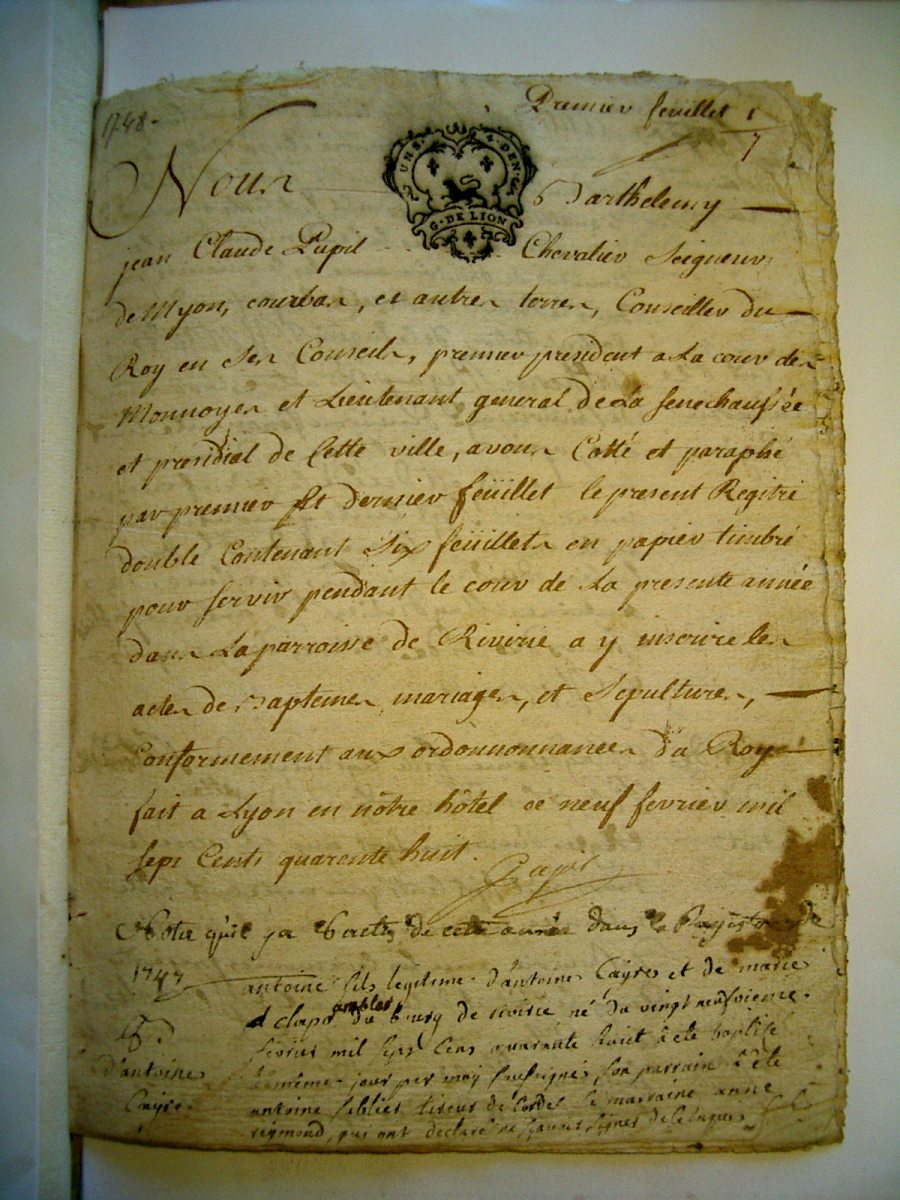 Premier feuillet 1
7
1748.
UN S. 4. DEN.
G. DE LION
Nous Barthelemy
jean Claude Pupil Chevalier Seigneur
de Myon, courbas, et autres terres, Conseiller du
Roy en Ses Conseils, premier president a La cour des
Monnoyes et Lieutenant general de La Senechaussée
et presidial de Cette ville, avons Cotté et paraphé
par premier et dernier feüillet le present Regitre
double Contenant Six feüillets en papier timbré
pour servir pendant le cour de La presente année
dans La parroisse de Riverie a y inscrire les
actes de Baptemes mariages, et Sepultures,
Conformement aux ordonnonnances Du Roy
fait a Lyon en nôtre hôtel ce neuf fevrier mil
sept Cents quarente huit.
Pupil
Nota qu'il y a 6 actes de cette année dans le Regitre de
1747
antoine fils legitime d'antoine Cayre et de marie
du bourg de riverie né du vingt neufvieme
fevrier mil sept cens quarante huit à été baptisé
le même jour par moy soussigné, son parrain à été
antoine tireur de Cordes la marraine anne
reymond, qui ont declaré ne scavoir signer de
B.
d'antoine
Cayre